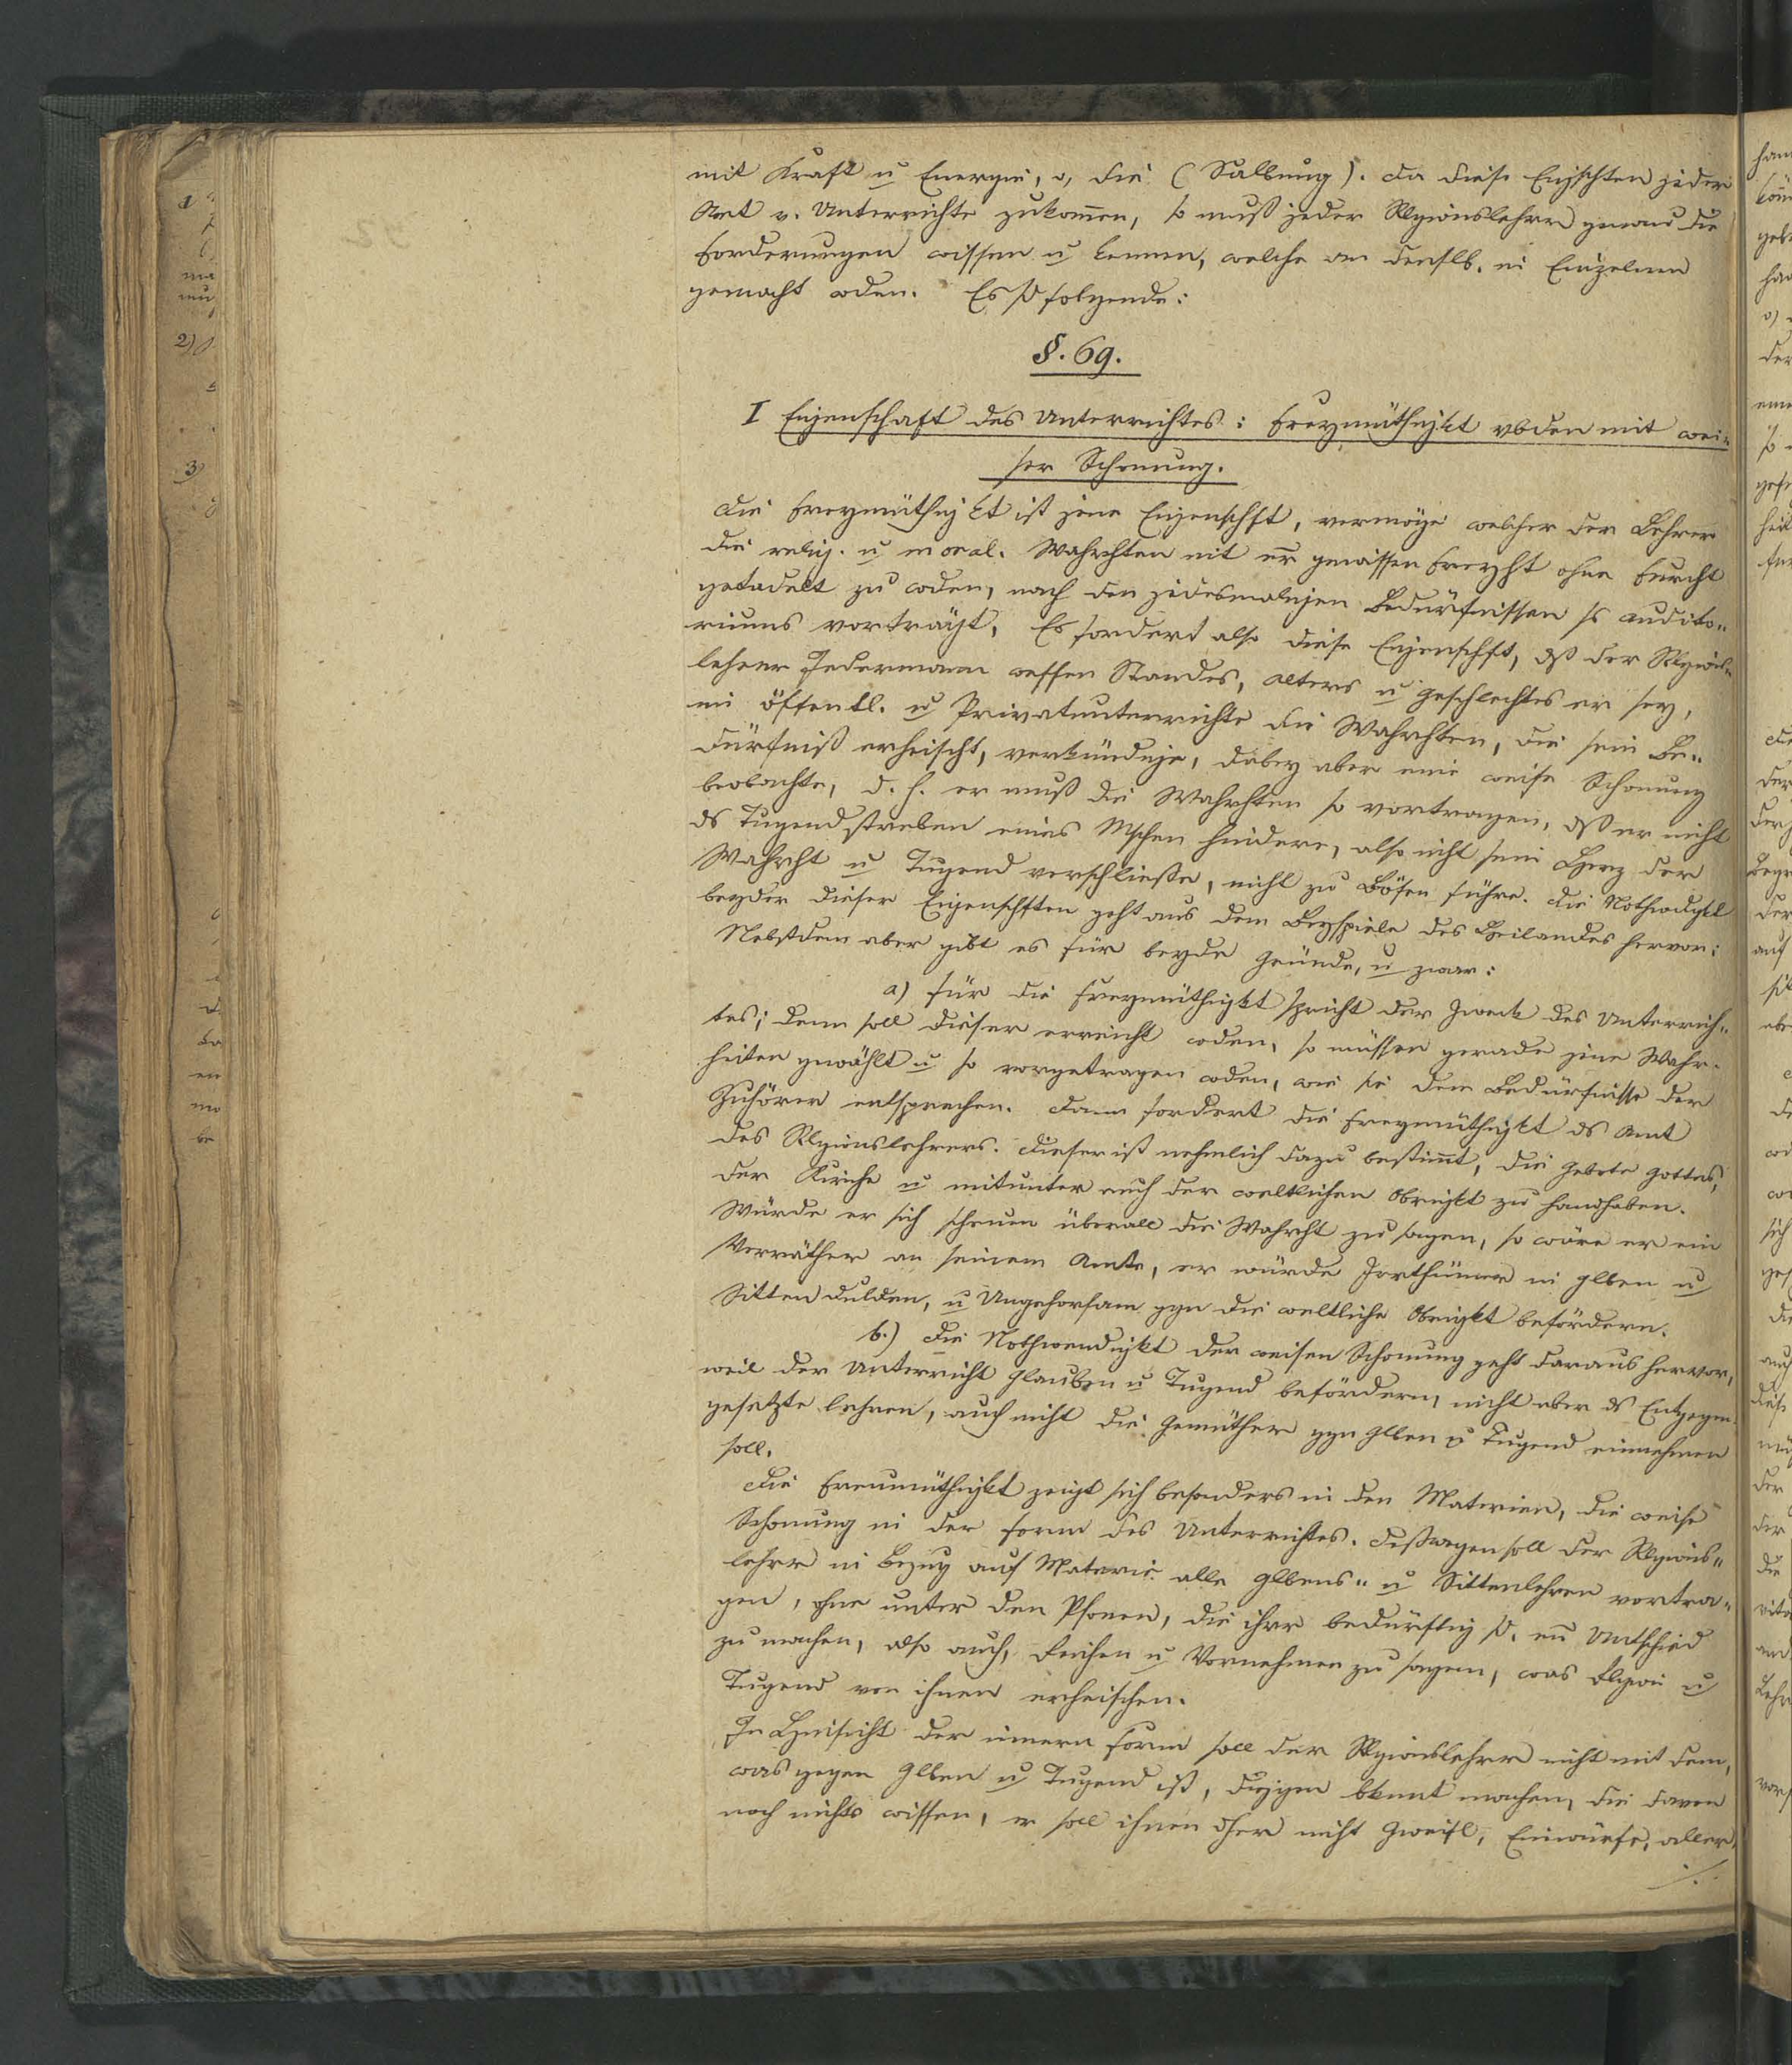 mit Kraft u Energie, v, die (Salbung). Da diese Eigschten jeder
Art v. Unterrichte zukom̄en, so muß jeder Rlgionslehrer genau die
Forderungen wissen u kennen, welche an denslb. in Einzelnen
gemacht wden. Es sd folgende:
§. 69.
I Eigenschaft des Unterrichtes: Freymüthigkt vbden mit wei-
ser Schonung.
Die Freymüthigkt ist jene Eigenschft, vermöge welcher der Lehrer
die relig. u moral. Wahrhten mit er gewissen Freyht ohne Furcht
getadelt zu wden, nach den jedesmaligen Bedürfnissen ss audito-
riums vorträgt. Es fordert also diese Eigenschft, dß der Rlgions-
lehrer Jedermann wessen Standes, Alters u Geschlechtes er sey,
im öffentl. u Privatunterrichte die Wahrhten, die sein Be-
dürfniß erheischt, verkündige, dabey aber eine weise Schonung
beobachte, d. h. er muß die Wahrhten so vortragen, dß er nicht
ds Tugendstreben eines Mschen hindere, also nicht sein Herz der
Wahrht u Tugend verschließe, nicht zu Bösen führe. Die Nothwdgkt
beyder dieser Eigenschften geht aus dem Beyspiele des Heilandes hervor;
Nebstdem aber gibt es für beyde Gründe, u zwar:
a) für die Freymüthigkt spricht der Zweck des Unterrich-
tes; denn soll dieser erreicht wden, so müssen gerade jene Wahr-
heiten gewählt u so vorgetragen wden, wie sie dem Bedürfnisse der
Zuhörer entsprechen. Dann fordert die Freymüthigkt ds Amt
des Rlgionslehrers. Dieser ist nehmlich dazu bestim̄t, die Gebote Gottes,
der Kirche u mitunter auch der weltlichen Obrigkt zu handhaben.
Würde er sich scheuen überall die Wahrht zu sagen, so wäre er ein
Verräther an seinem Amte, er würde Irrthümer in Glben u
Sitten dulden, u Ungehorsam ggn die weltliche Obrigkt befördern.
b.) Die Nothwendigkt der weisen Schonung geht daraus hervor,
weil der Unterricht Glauben u Tugend befördern, nicht aber ds Entgegen-
gesetzte lehren, auch nicht die Gemüther ggn Glben u Tugend einnehmen
soll.
Die Freumüthigkt zeigt sich besonders in den Materien, die weise
Schonung in der Form des Unterrichtes. Deßwegen soll der Rlgions-
lehrer in Bezug auf Materie alle Glbens- u Sittenlehren vortra-
gen, ohne unter den Psonen, die ihrer bedürftig sd. en Untschied
zu machen, also auch, Reichen u Vornehmen zu sagen, was Rlgion u
Tugend von ihnen erheischen.
In Hinsicht der innern Form soll der Rlgionslehrer nicht mit dem,
was gegen Glben u Tugend ist, diejgen bknnt machen, die davon
noch nichts wissen, er soll ihnen dher nicht Zweifl, Einwürfe, aller
./.